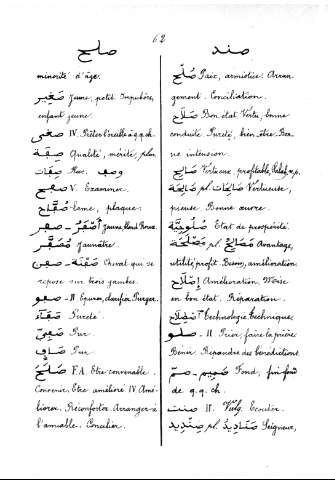 صلح
62
صند
minorité d'âge.
صغير Jeune, petit. Impubère,
enfant jeune
صغى IV. Prêter l'oreille à q.q.ch.
صفة Qualité, mérité, plur.
صفات Rac. وصف
صفح V. Examiner.
صفاح Lame, plaque:
صفر - أصفر Jaune, blond. Roux.
مصفر Jaunâtre.
صفن - صفنة Cheval qui se
repose sur trois jambes.
صفو - II Epurer, clarifier. Purger.
صفاء Pureté.
صفيّ Pur.
صافٍ Pur
صلح F.A. Etre convenable.
Convenir. Etre amélioré IV. Amé-
liorer. Réconforter. Arranger à
l'amiable. Concilier.
صلح Paix, armistice. Arran-
gement. Conciliation.
صلاح Bon état. Vertu, bonne
conduite. Pureté, bien être. Bo-
ne intension.
صالح Vertueux, profitable,
صالحة pl. صالحات Vertueuse,
pieuse. Bonne œuvre.
صلوحية Etat de prospérité.
مصلحة pl. مصالح Avantage,
utilité, profit. Besoin, amélioration.
إصلاح Amélioration. Mise
en bon état. Réparation.
إصطلاح Technologie, technique.
صلو - II. Prier, faire la prière
Bénir. Répandre des bénédictions
صمّ - صميم Fond, fin fond
de q.q.ch.
صنت II. Vulg. Ecouter.
صنديد pl. صناديد Seigneur,